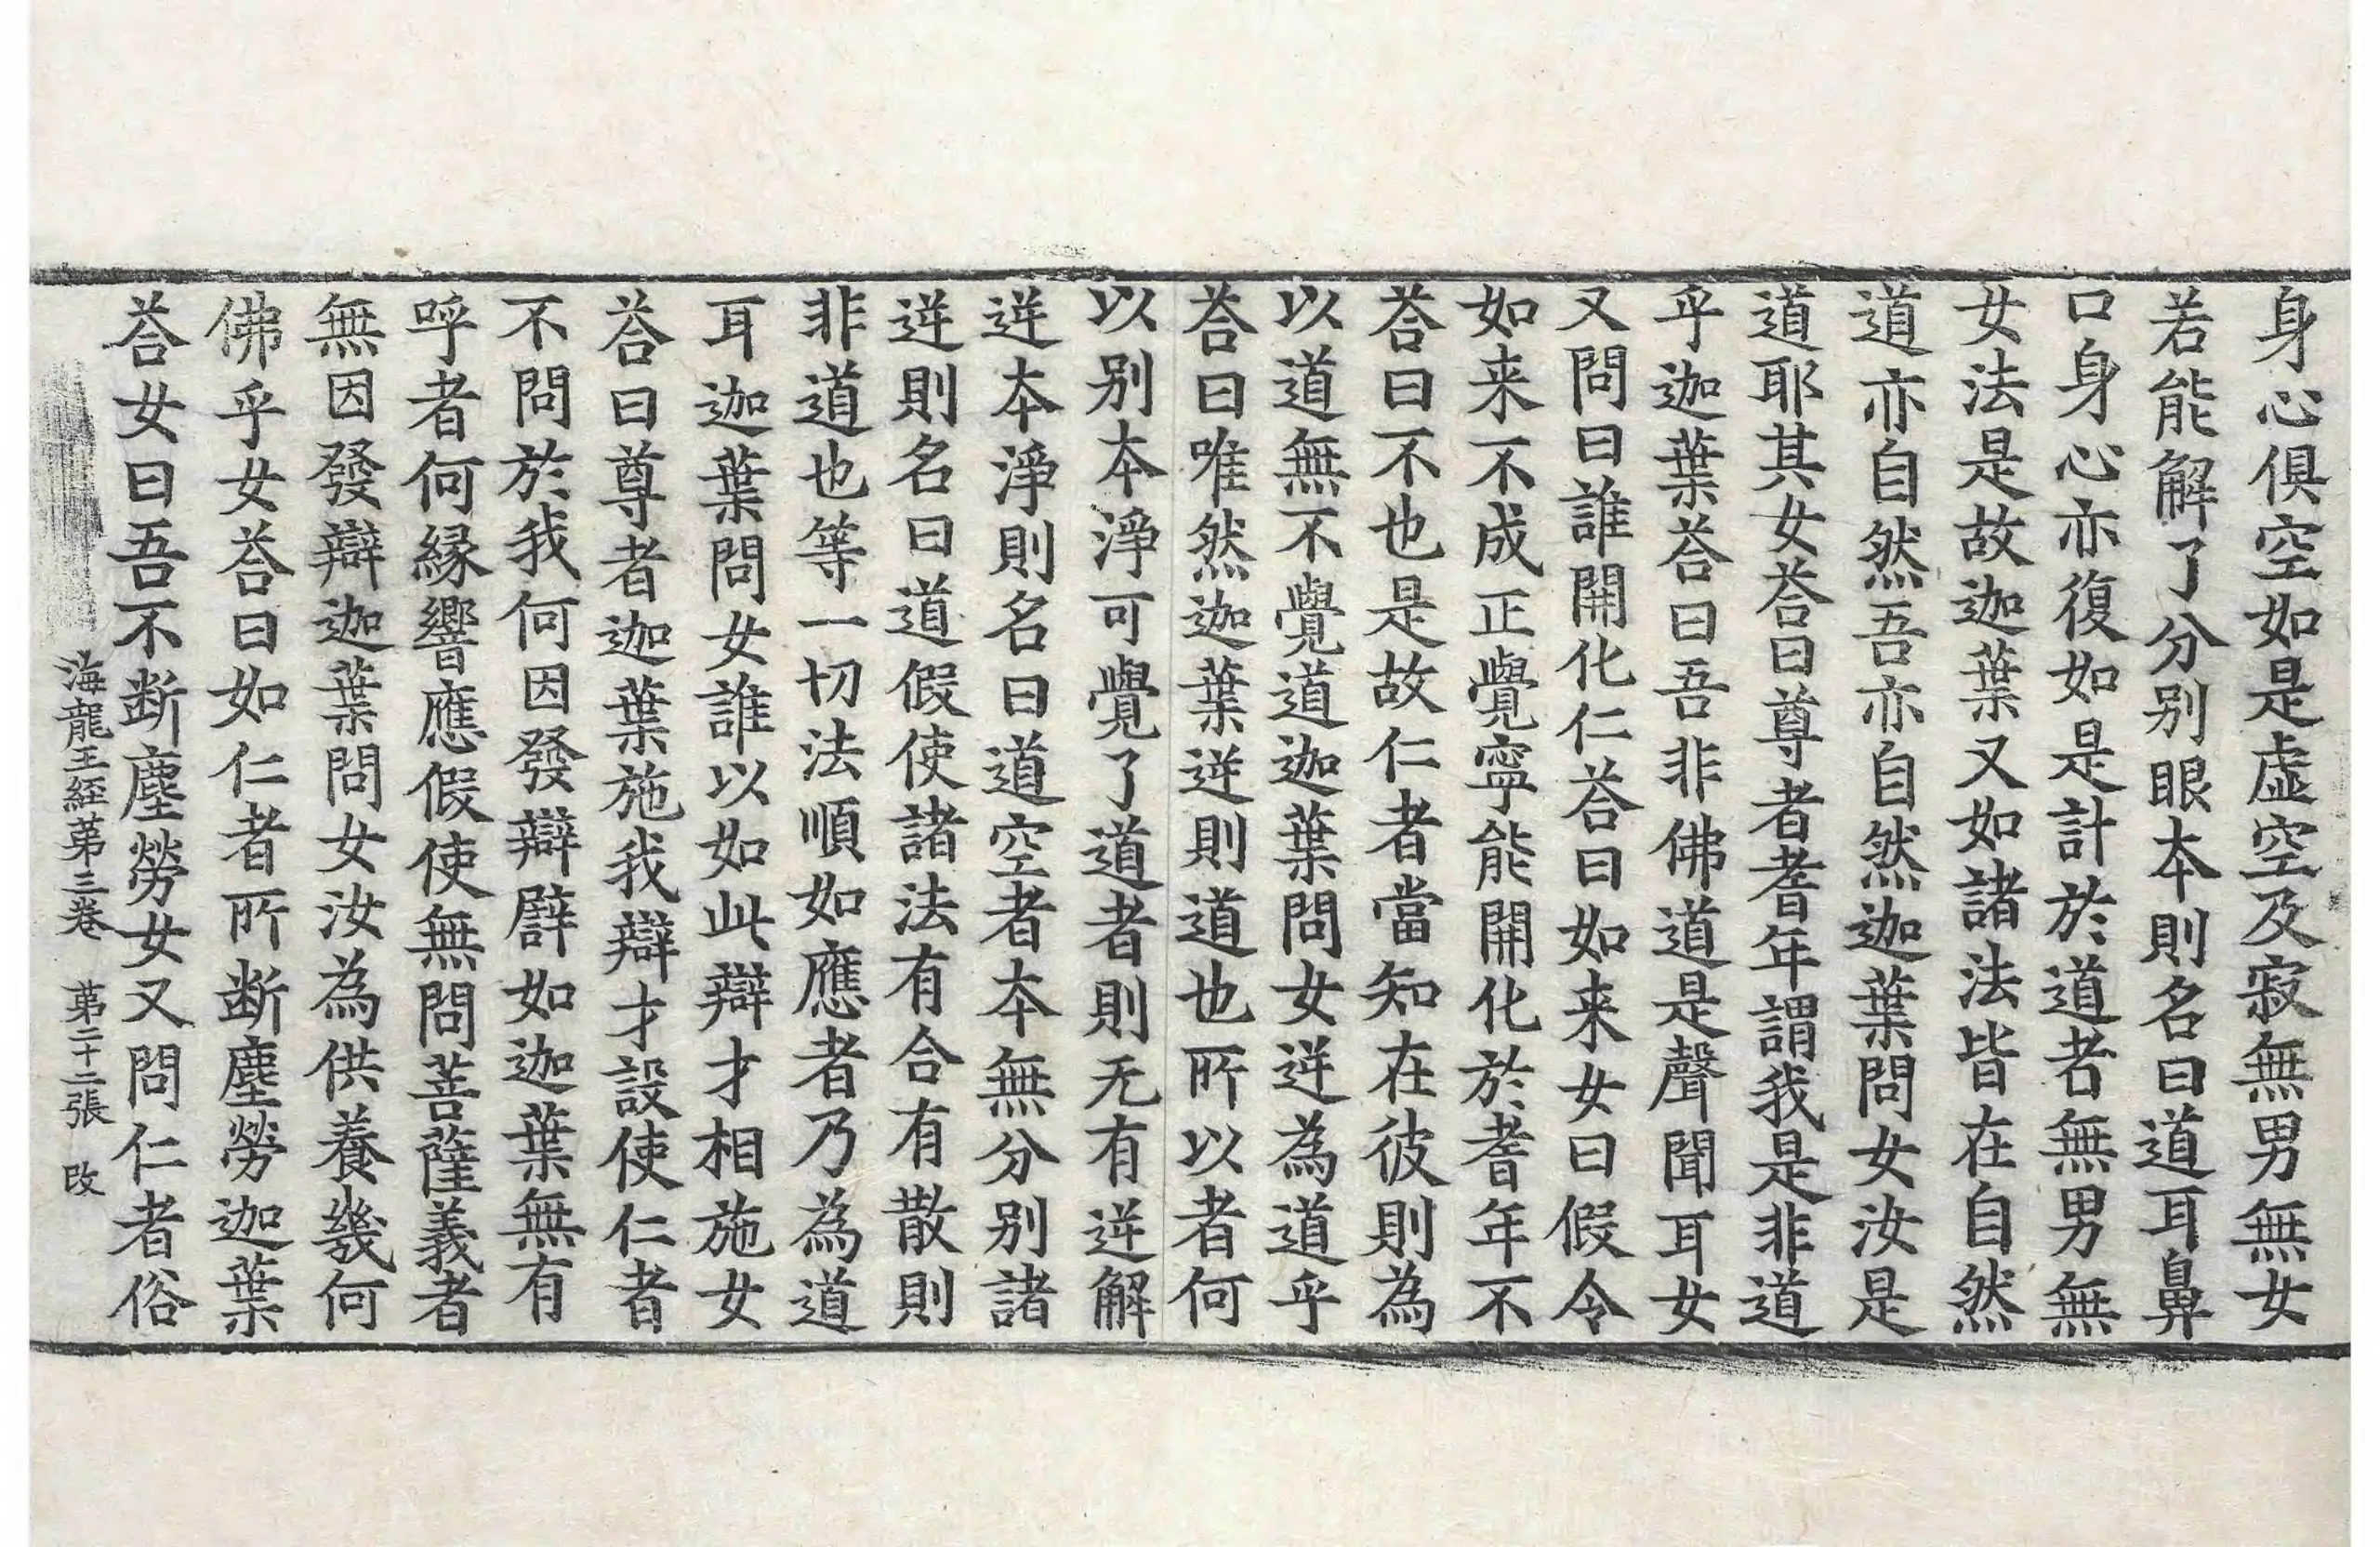 身心俱空如是虛空及寂無男無女
若能解了分别眼本則名曰道耳鼻
口身心亦復如是計於道者無男無
女法是故迦葉又如諸法皆在自然
道亦自然吾亦自然迦葉問女汝是
道耶其女荅曰尊者耆年謂我是非道
乎迦葉荅曰吾非佛道是聲聞耳女
又問曰誰開化仁荅曰如来女曰假令
如来不成正覺寧能開化於耆年不
荅曰不也是故仁者當知在彼則為
以道無不覺道迦葉問女逆為道乎
荅曰唯然迦葉逆則道也所以者何
以别本淨可覺了道者則无有逆解
逆本淨則名曰道空者本無分别諸
逆則名曰道假使諸法有合有散則
非道也等一切法順如應者乃為道
耳迦葉問女誰以如此辯才相施女
荅曰尊者迦葉施我辯才設使仁者
不問於我何因發辯譬如迦葉無有
呼者何緣響應假使無問菩薩義者
無因發辯迦葉問女汝為供養幾何
佛乎女荅曰如仁者所断塵勞迦葉
荅女曰吾不断塵勞女又問仁者俗
海龍王經第三卷 第二十二張 改